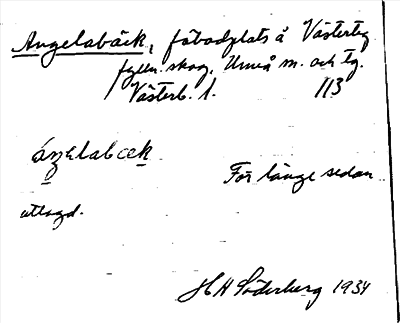 Angelabäck, fäbodplats å Västerteg
fylln. skog, Umeå m. och tg.
Västerb. l. 113
áŋelabæk
För länge sedan
utlagd.
H H Söderberg 1934